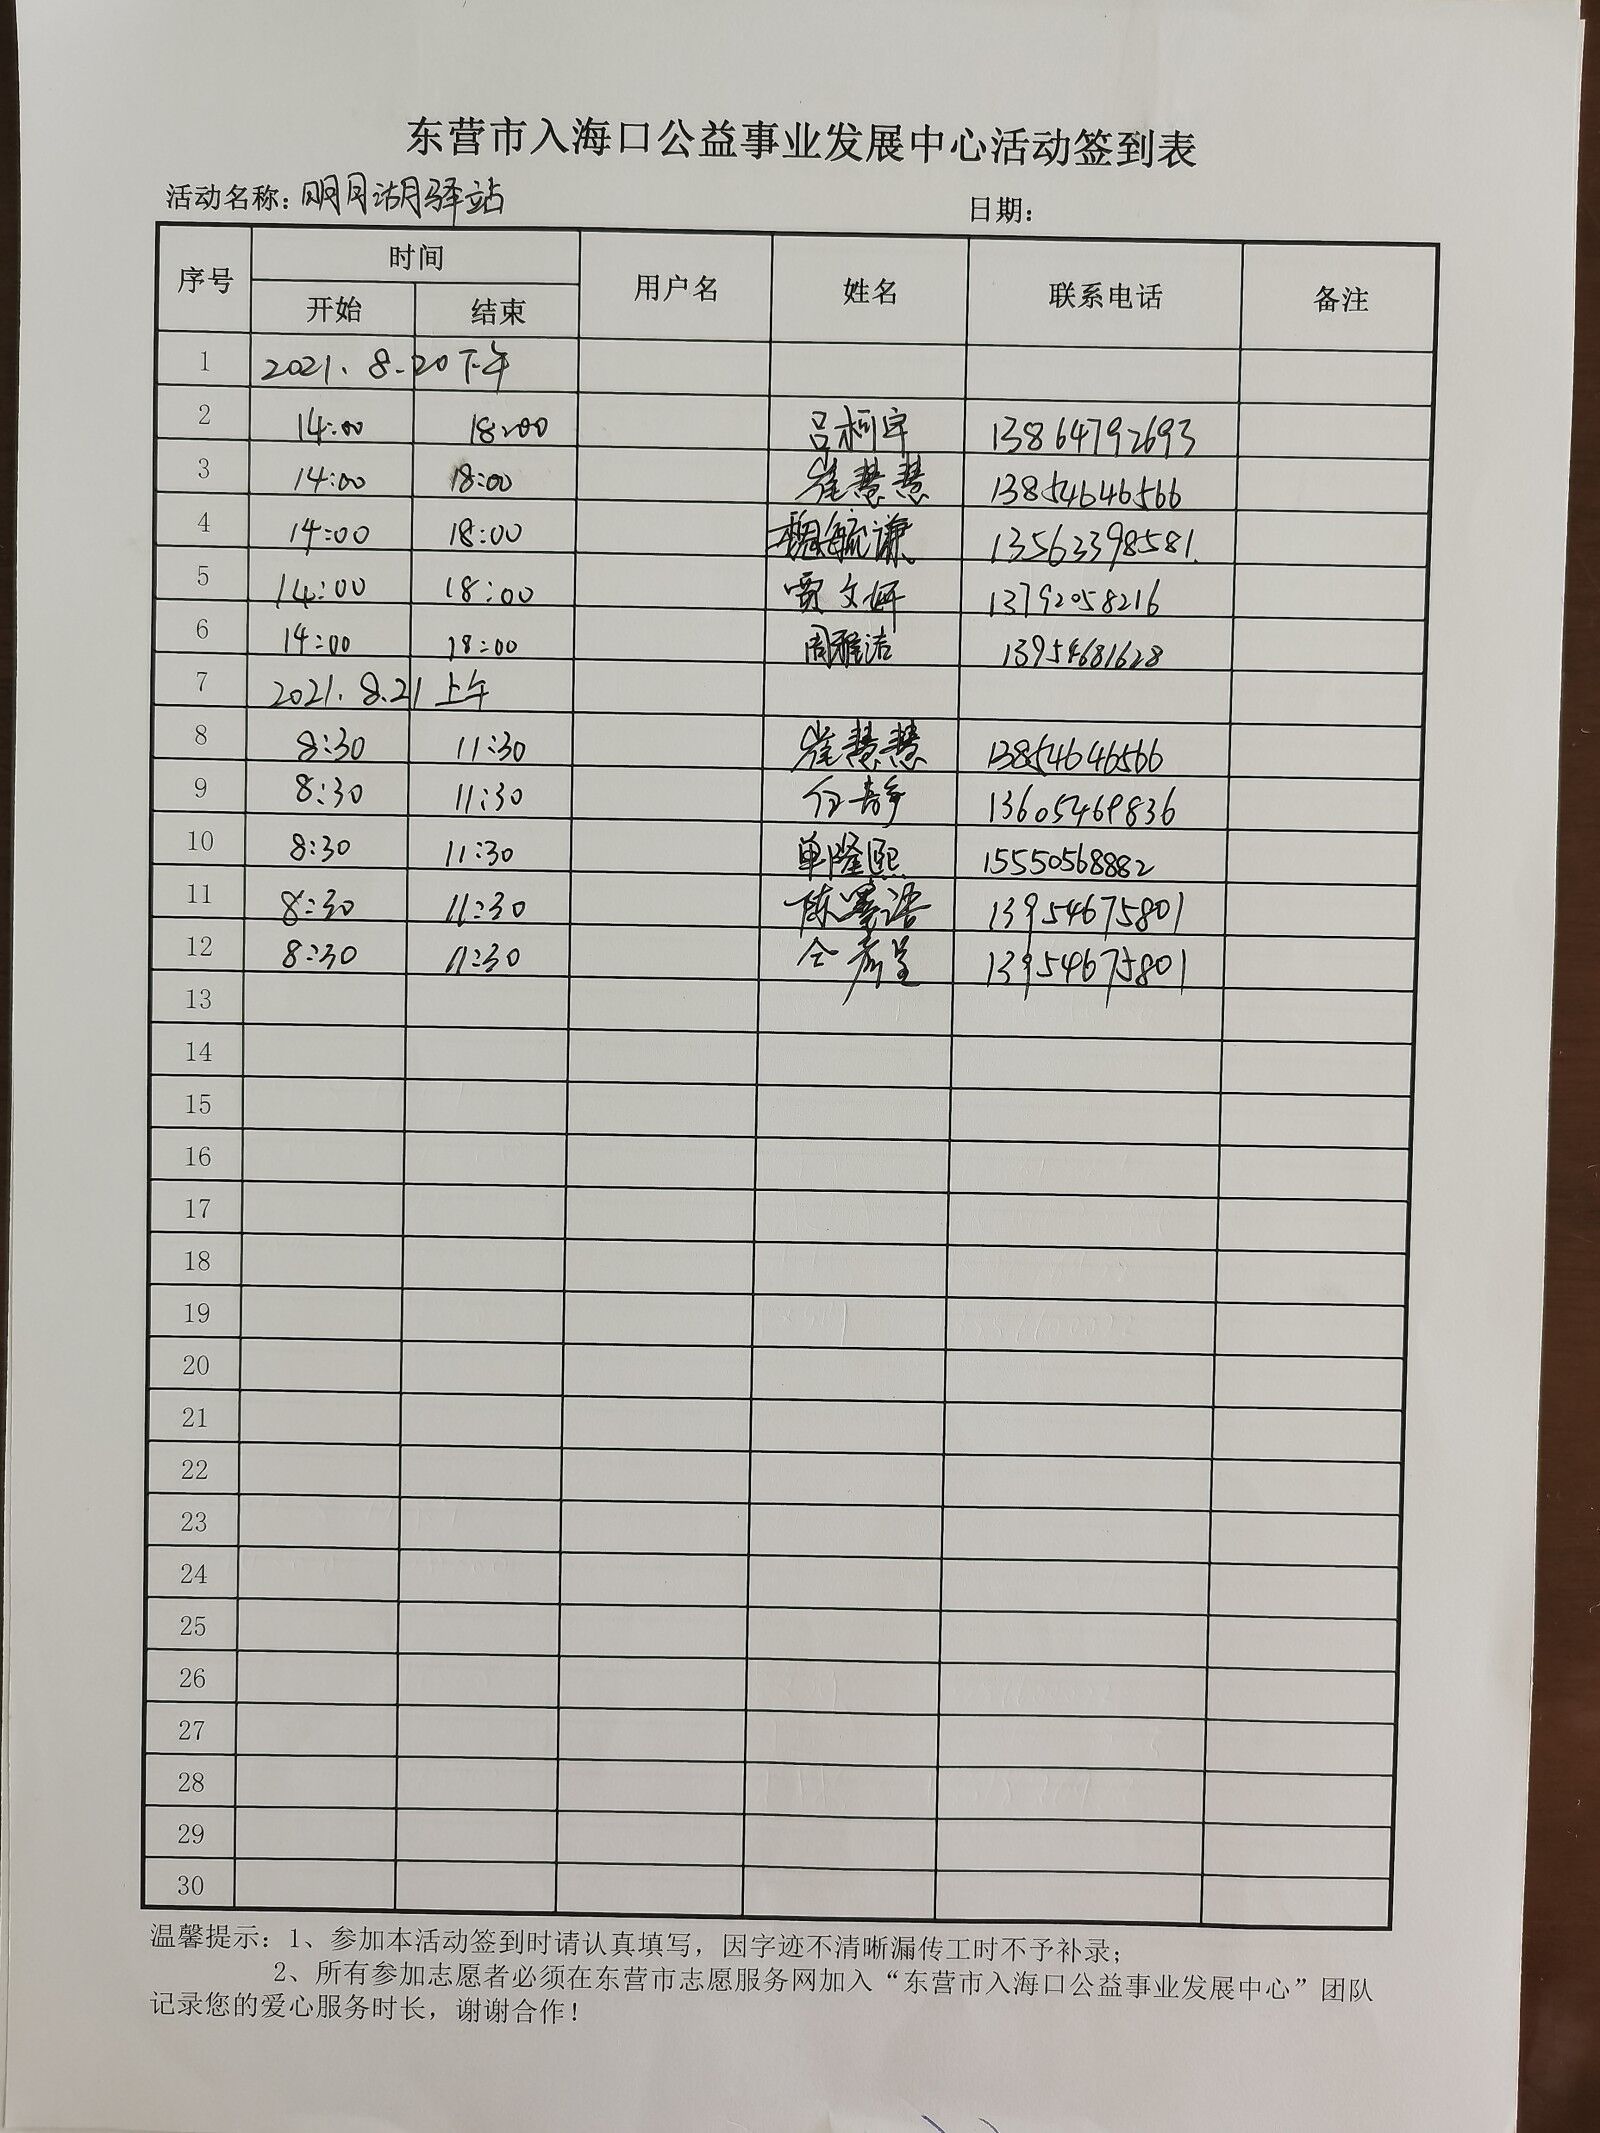 东营市入海口公益事业发展中心活动签到表
活动名称：明月湖驿站 日期：
序号 时间 用户名 姓名 联系电话 备注
开始 结束
1 2021.8.20下午
2 14:00 18:00 吕柯宇 13864792693
3 14:00 18:00 崔慧慧 13854646566
4 14:00 18:00 魏毓谦 13563398581.
5 14:00 18:00 贾文妍 13792058216
6 14:00 18:00 周雅洁 13954681628
7 2021.8.21上午
8 8:30 11:30 崔慧慧 13854646566
9 8:30 11:30 任静 13605469836
10 8:30 11:30 单隆熙 15550568882
11 8:30 11:30 陈墨语 13954675801
12 8:30 11:30 13954675801
13
14
15
16
17
18
19
20
21
22
23
24
25
26
27
28
29
30
温馨提示：1、参加本活动签到时请认真填写，因字迹不清晰漏传工时不予补录；
2、所有参加志愿者必须在东营市志愿服务网加入“东营市入海口公益事业发展中心”团队
记录您的爱心服务时长，谢谢合作！